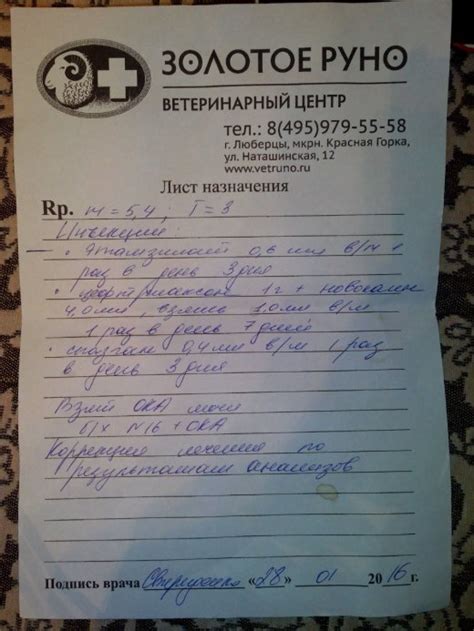 ЗОЛОТОЕ РУНО
ВЕТЕРИНАРНЫЙ ЦЕНТР
тел.: 8(495)979-55-58
г. Люберцы, мкрн. Красная Горка,
ул. Наташинская, 12
www.vetruno.ru
Лист назначения
Rp. м = 5,4 ; T = 3
Инъекции:
• Этамзилат 0,6 мл в/м 1
раз в день 3 дня
• цефтриаксон 1г + новокаин
4,0мл, взять 1,0мл в/м
1 раз в день 7 дней
• спазган 0,4мл в/м 1 раз
в день 3 дня
ОКА мочи
б/х N16 + ОКА
Коррекция лечения по
результатам анализов
Подпись врача «28» 01 2016 г.